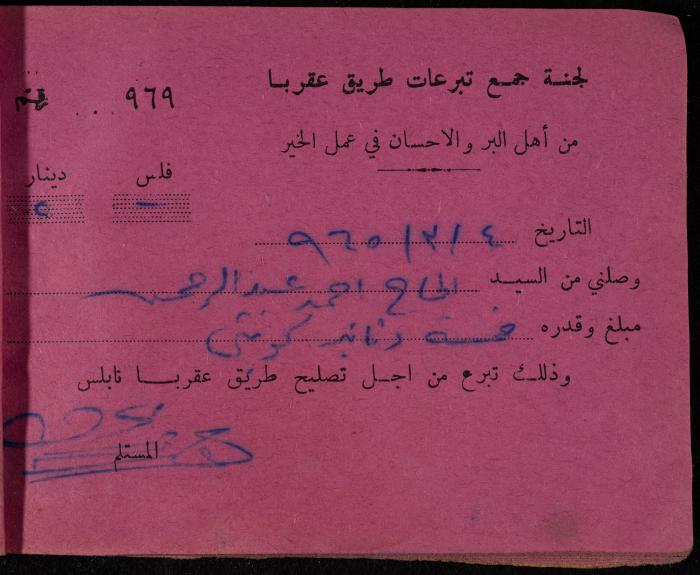 لجنة جمع تبرعات طريق عقربا
٩٦٩ رقم
من أهل البر والاحسان في عمل الخير
فلس دينار
- ٥
التاريخ ٤/٣/٩٦٥
وصلني من السيد الحاج احمد عبد الرحمن
مبلغ وقدره خمسة دنانير كويتي
وذلك تبرع من اجل تصليح طريق عقربا نابلس
المستلم